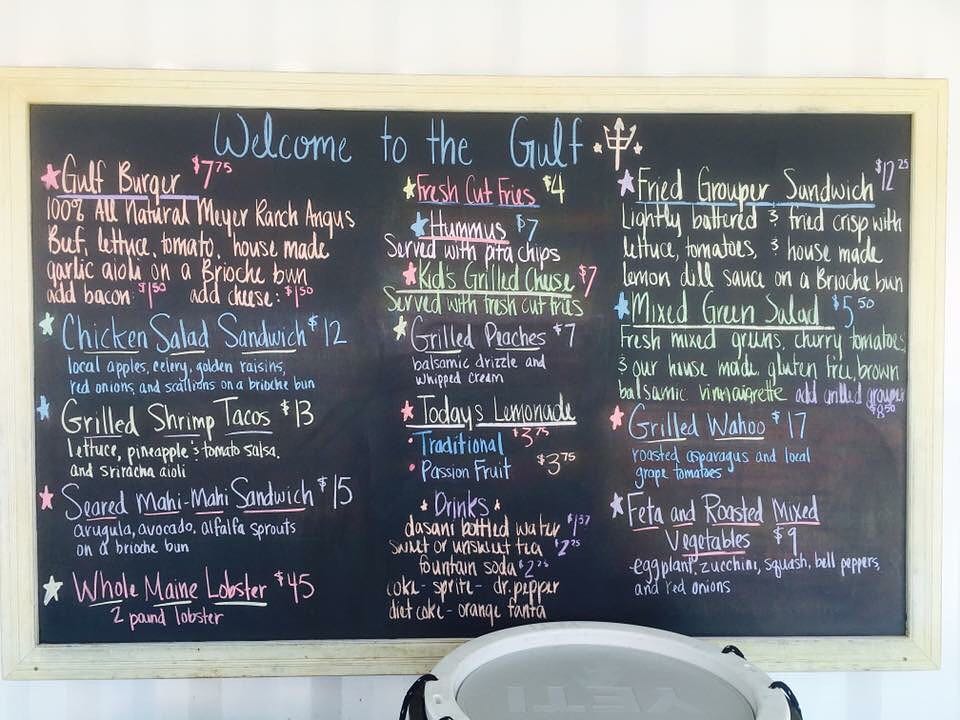 Welcome to the Gulf
Gulf Burger $7.75
100% All Natural Meyer Ranch Angus
Beef, lettuce, tomato, house made
garlic aioli on a Brioche bun
add bacon: $1.50 add cheese: $1.50
Chicken Salad Sandwich $12
local apples, celery, golden raisins,
red onions, and scallions on a brioche bun
Grilled Shrimp Tacos $13
lettuce, pineapple & tomato salsa,
and sriracha aioli
Seared Mahi-Mahi Sandwich $15
arugula, avocado, alfalfa sprouts
on a brioche bun
Whole Maine Lobster $45
2 pound lobster
Fresh Cut Fries $4
Hummus $7
Served with pita chips
Kid's Grilled Cheese $7
Served with fresh cut fries
Grilled Peaches $7
balsamic drizzle and
whipped cream
Today's Lemonade
Traditional $3.75
Passion Fruit $3.75
Drinks
dasani bottled water
sweet or unsweet tea $2.25
fountain soda $2.25
coke - sprite - dr. pepper
diet coke - orange fanta
Fried Grouper Sandwich $12.25
Lightly battered & fried crisp with
lettuce, tomatoes, & house made
lemon dill sauce on a Brioche bun
Mixed Green Salad $5.50
Fresh mixed greens, cherry tomatoes,
& our house made gluten free, brown
balsamic vinnaigrette add grilled grouper
$8.50
Grilled Wahoo $17
roasted asparagus and local
grape tomatoes
Feta and Roasted Mixed
Vegetables $9
eggplant, zucchini, squash, bell peppers,
and red onions
YETI